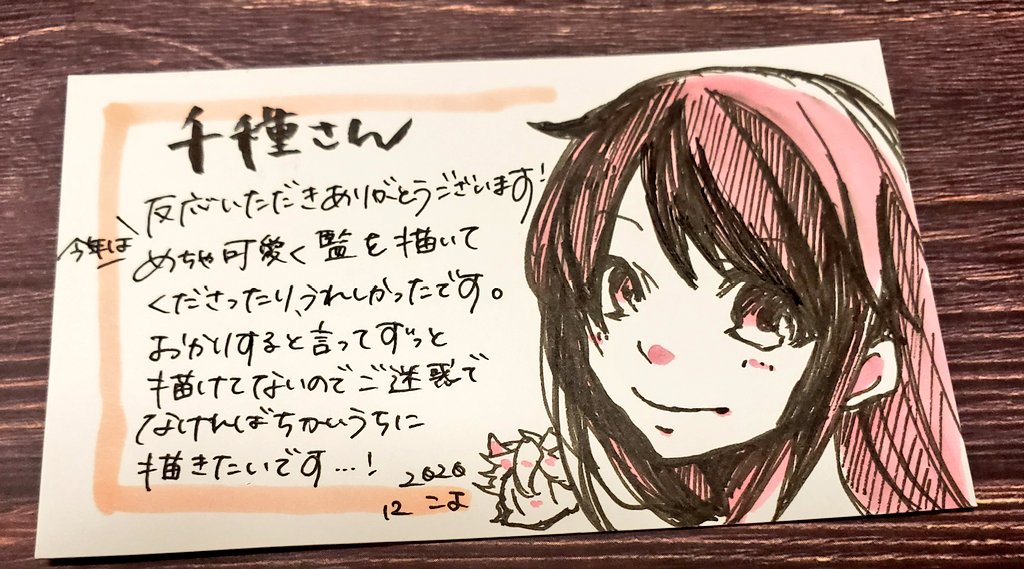 千種さん
反応いただきありがとうございます!
今年は
めちゃ可愛く監を描いて
くださったり、うれしかったです。
おかりすると言ってずっと
描けてないのでご迷惑で
なければちかいうちに
描きたいです…!
2020
12 こよ